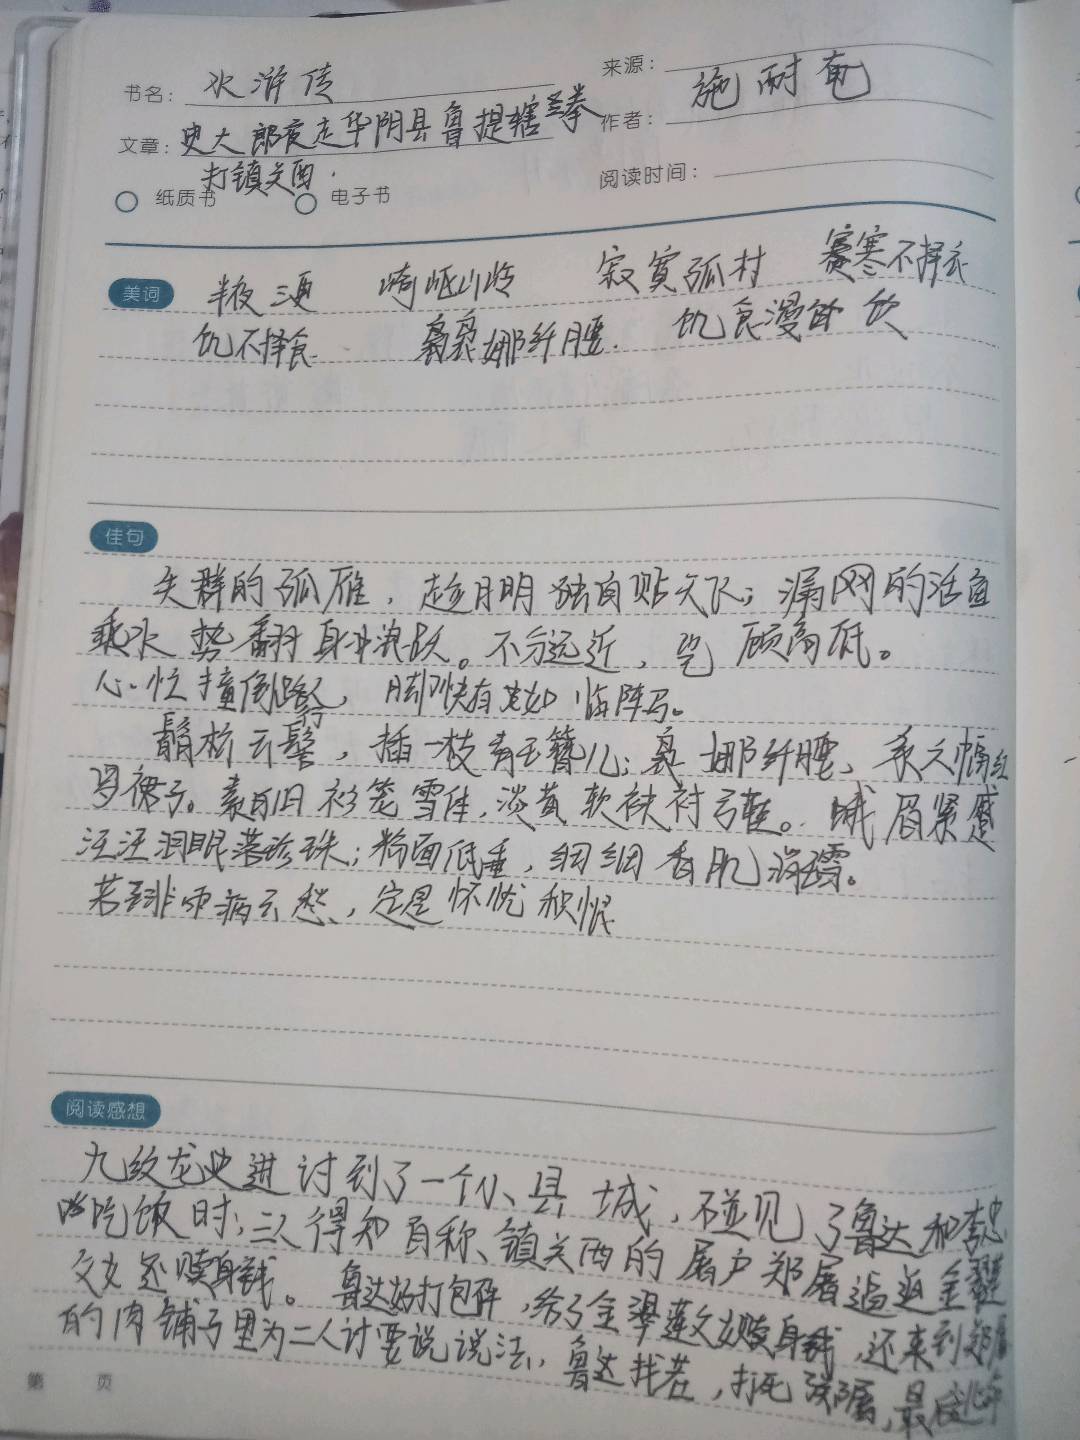 书名： 水浒传 来源：
文章： 史大郎夜走华阴县鲁提辖拳 作者： 施耐庵
打镇关西.
纸质书 电子书 阅读时间：
美词 半夜三更 崎岖山岭 寂寞孤村 寒不择衣
饥不择食 袅娜纤腰. 饥食渴饮
佳句
失群的孤雁，趁月明独自贴天飞；漏网的活鱼
乘水势翻身冲浪跃。不分远近，岂顾高低。
心忙撞倒路行人，脚快有如临阵马。
鬅松云髻，插一枝青玉簪儿；袅娜纤腰，系六幅红
罗裙子。素白旧衫笼雪体，淡黄软袜衬弓鞋。蛾眉紧蹙
汪汪泪眼落珍珠；粉面低垂，细细香肌消雪。
若非雨病云愁，定是怀忧积恨
阅读感想
九纹龙史进讨到了一个小县城，碰见了鲁达和李忠
吃饭时，二人得知自称镇关西的屠户郑屠逼迫金翠莲
父女还赎身钱。鲁达好打包件，给了金翠莲父女赎身钱，还来到郑屠
的肉铺子里为二人讨要说说法，鲁达找茬，打死郑屠，最后逃命
第 页